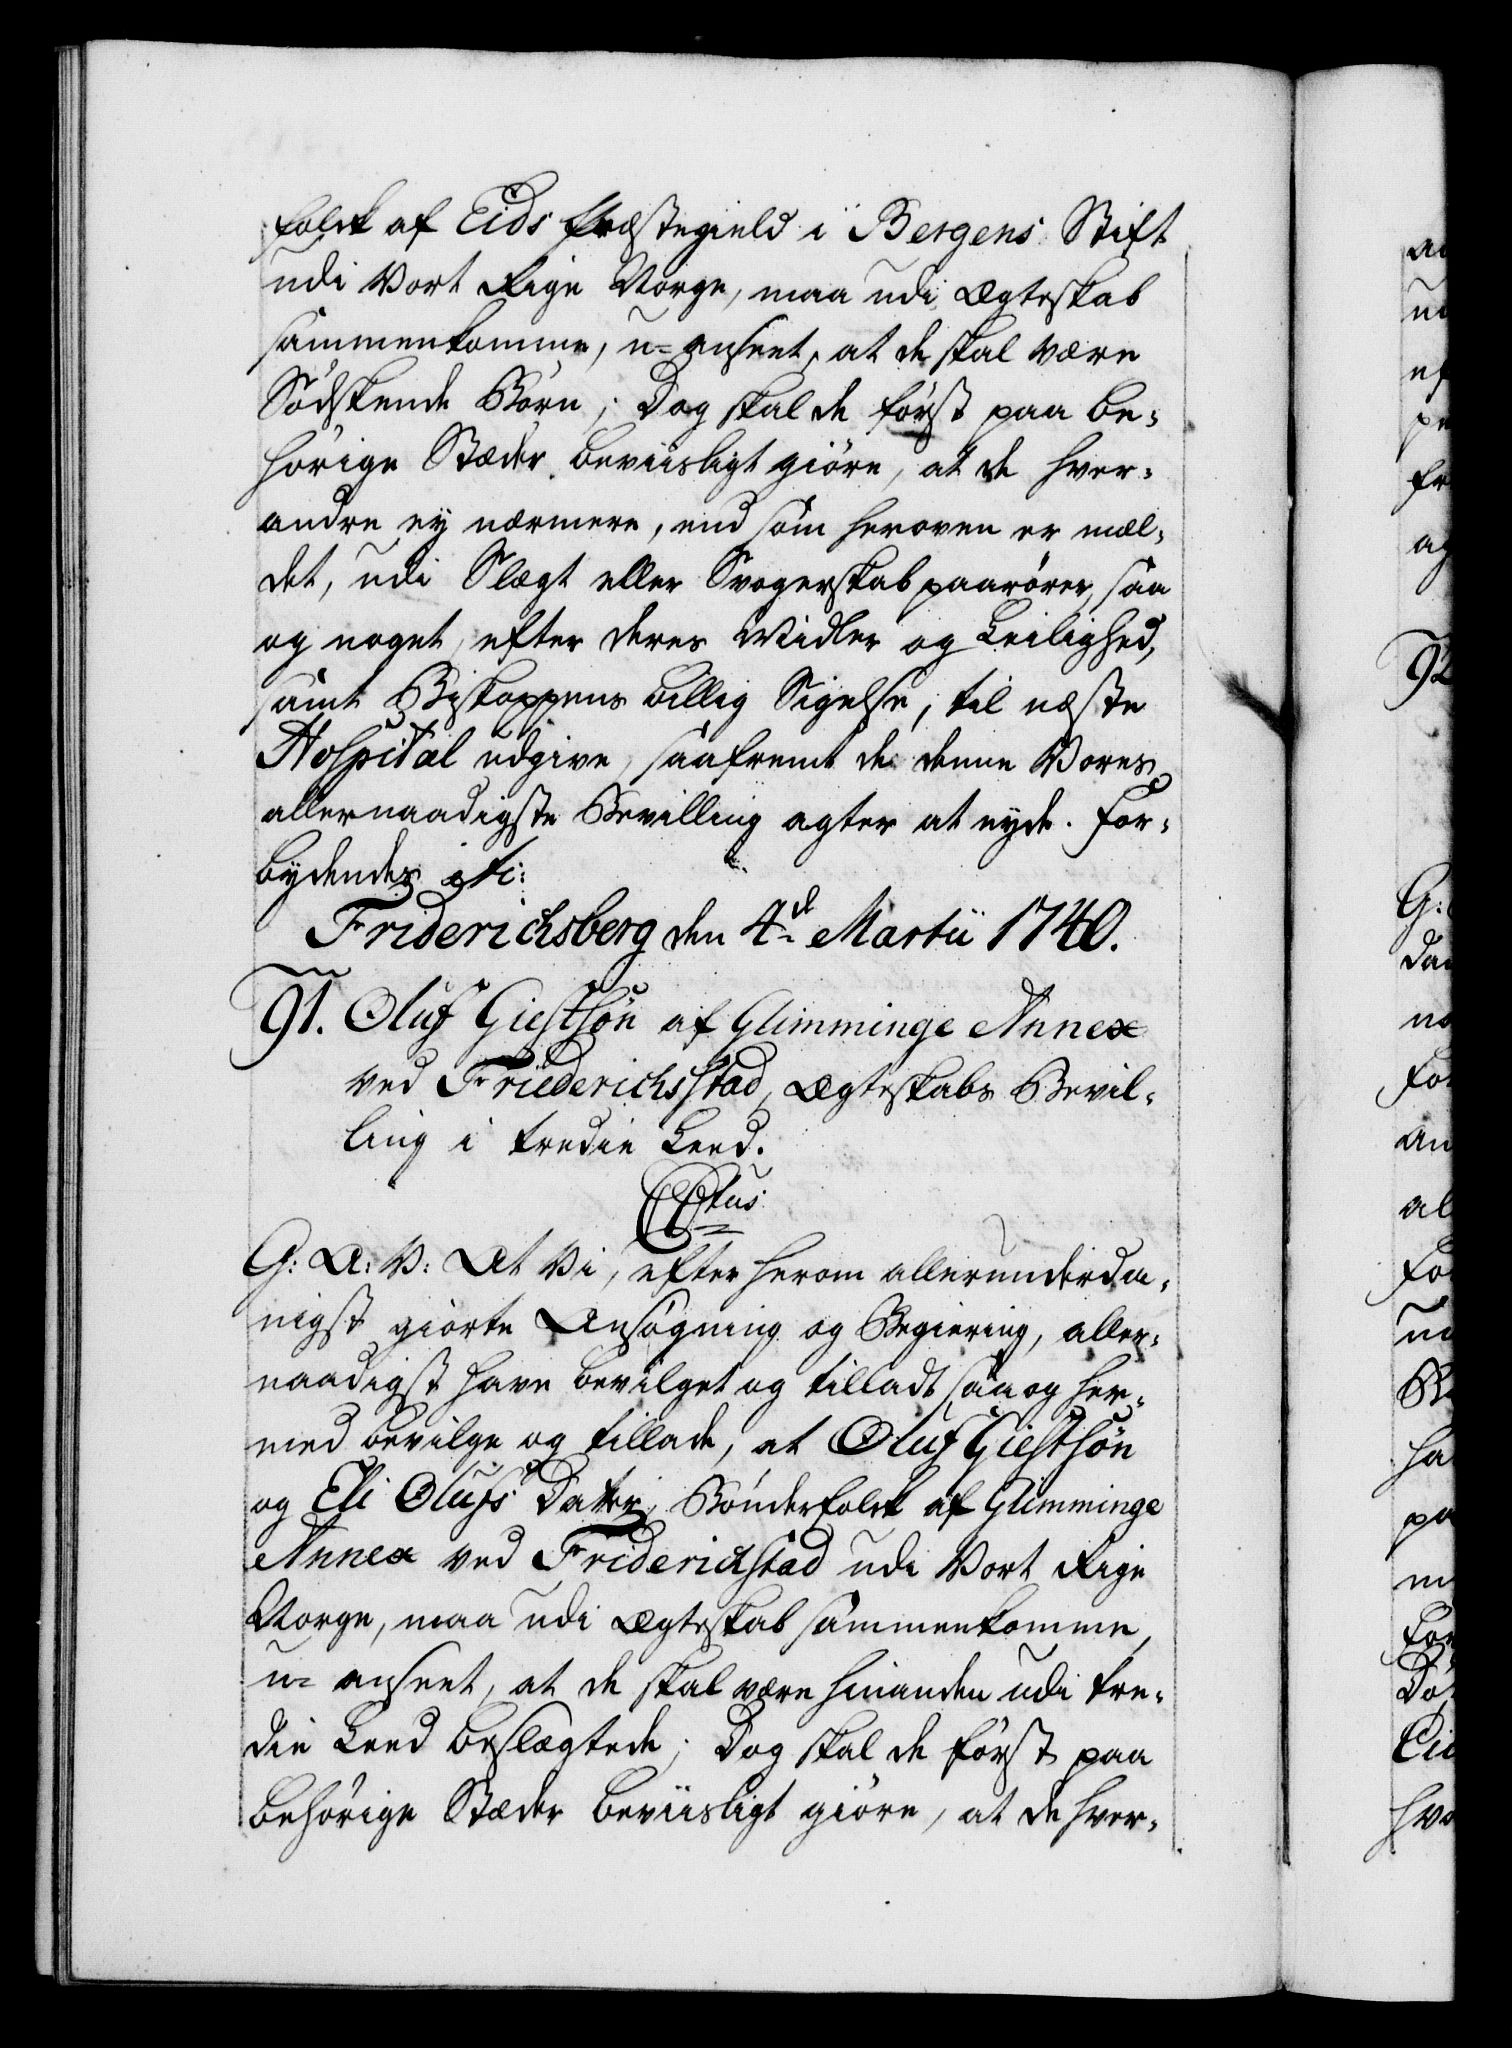 folck af Eids Præstegield i Bergens Stift
udi Vort Rige Norge, maa udi Ægteskab
sammenkomme, u-anseet, at de skal være
Sødskende Børn; Dog skal de først paa be-
hørige Stæder beviisligt giøre, at de hver-
andre ey nærmere, end som heroven er mel-
det, udi Slægt eller Svogerskab paarører, saa
og noget, efter deres Midler og Leilighed,
samt Biskoppens billig Sigelse, til næste
Hospital udgive, saafremt de denne Vores
allernaadigste Bevilling agter at nyde. For-
bydendes etc:
Friderichsberg den 4d Martii 1740.
91. Oluf Giestsøn af Glimminge Annex
ved Friederichsstad, Ægteskabs Bevil-
ling i tredie Leed.
CCtus
G: A: V: At Vi, efter herom allerunderda-
nigst giorte Ansøgning og Begiering, aller-
naadigst have bevilget og tilladt, saa og her-
med bevilge og tillade, at Oluf Giestsøn
og Eli Olufs Datter, Bønderfolck af Glimminge
Annex ved Friderichstad udi Vort Rige
Norge, maa udi Ægteskab sammenkomme,
u-anseet, at de skal være hinanden udi tre-
die Leed beslægtede; Dog skal de først paa
behørige Stæder beviisligt giøre, at de hver-
92